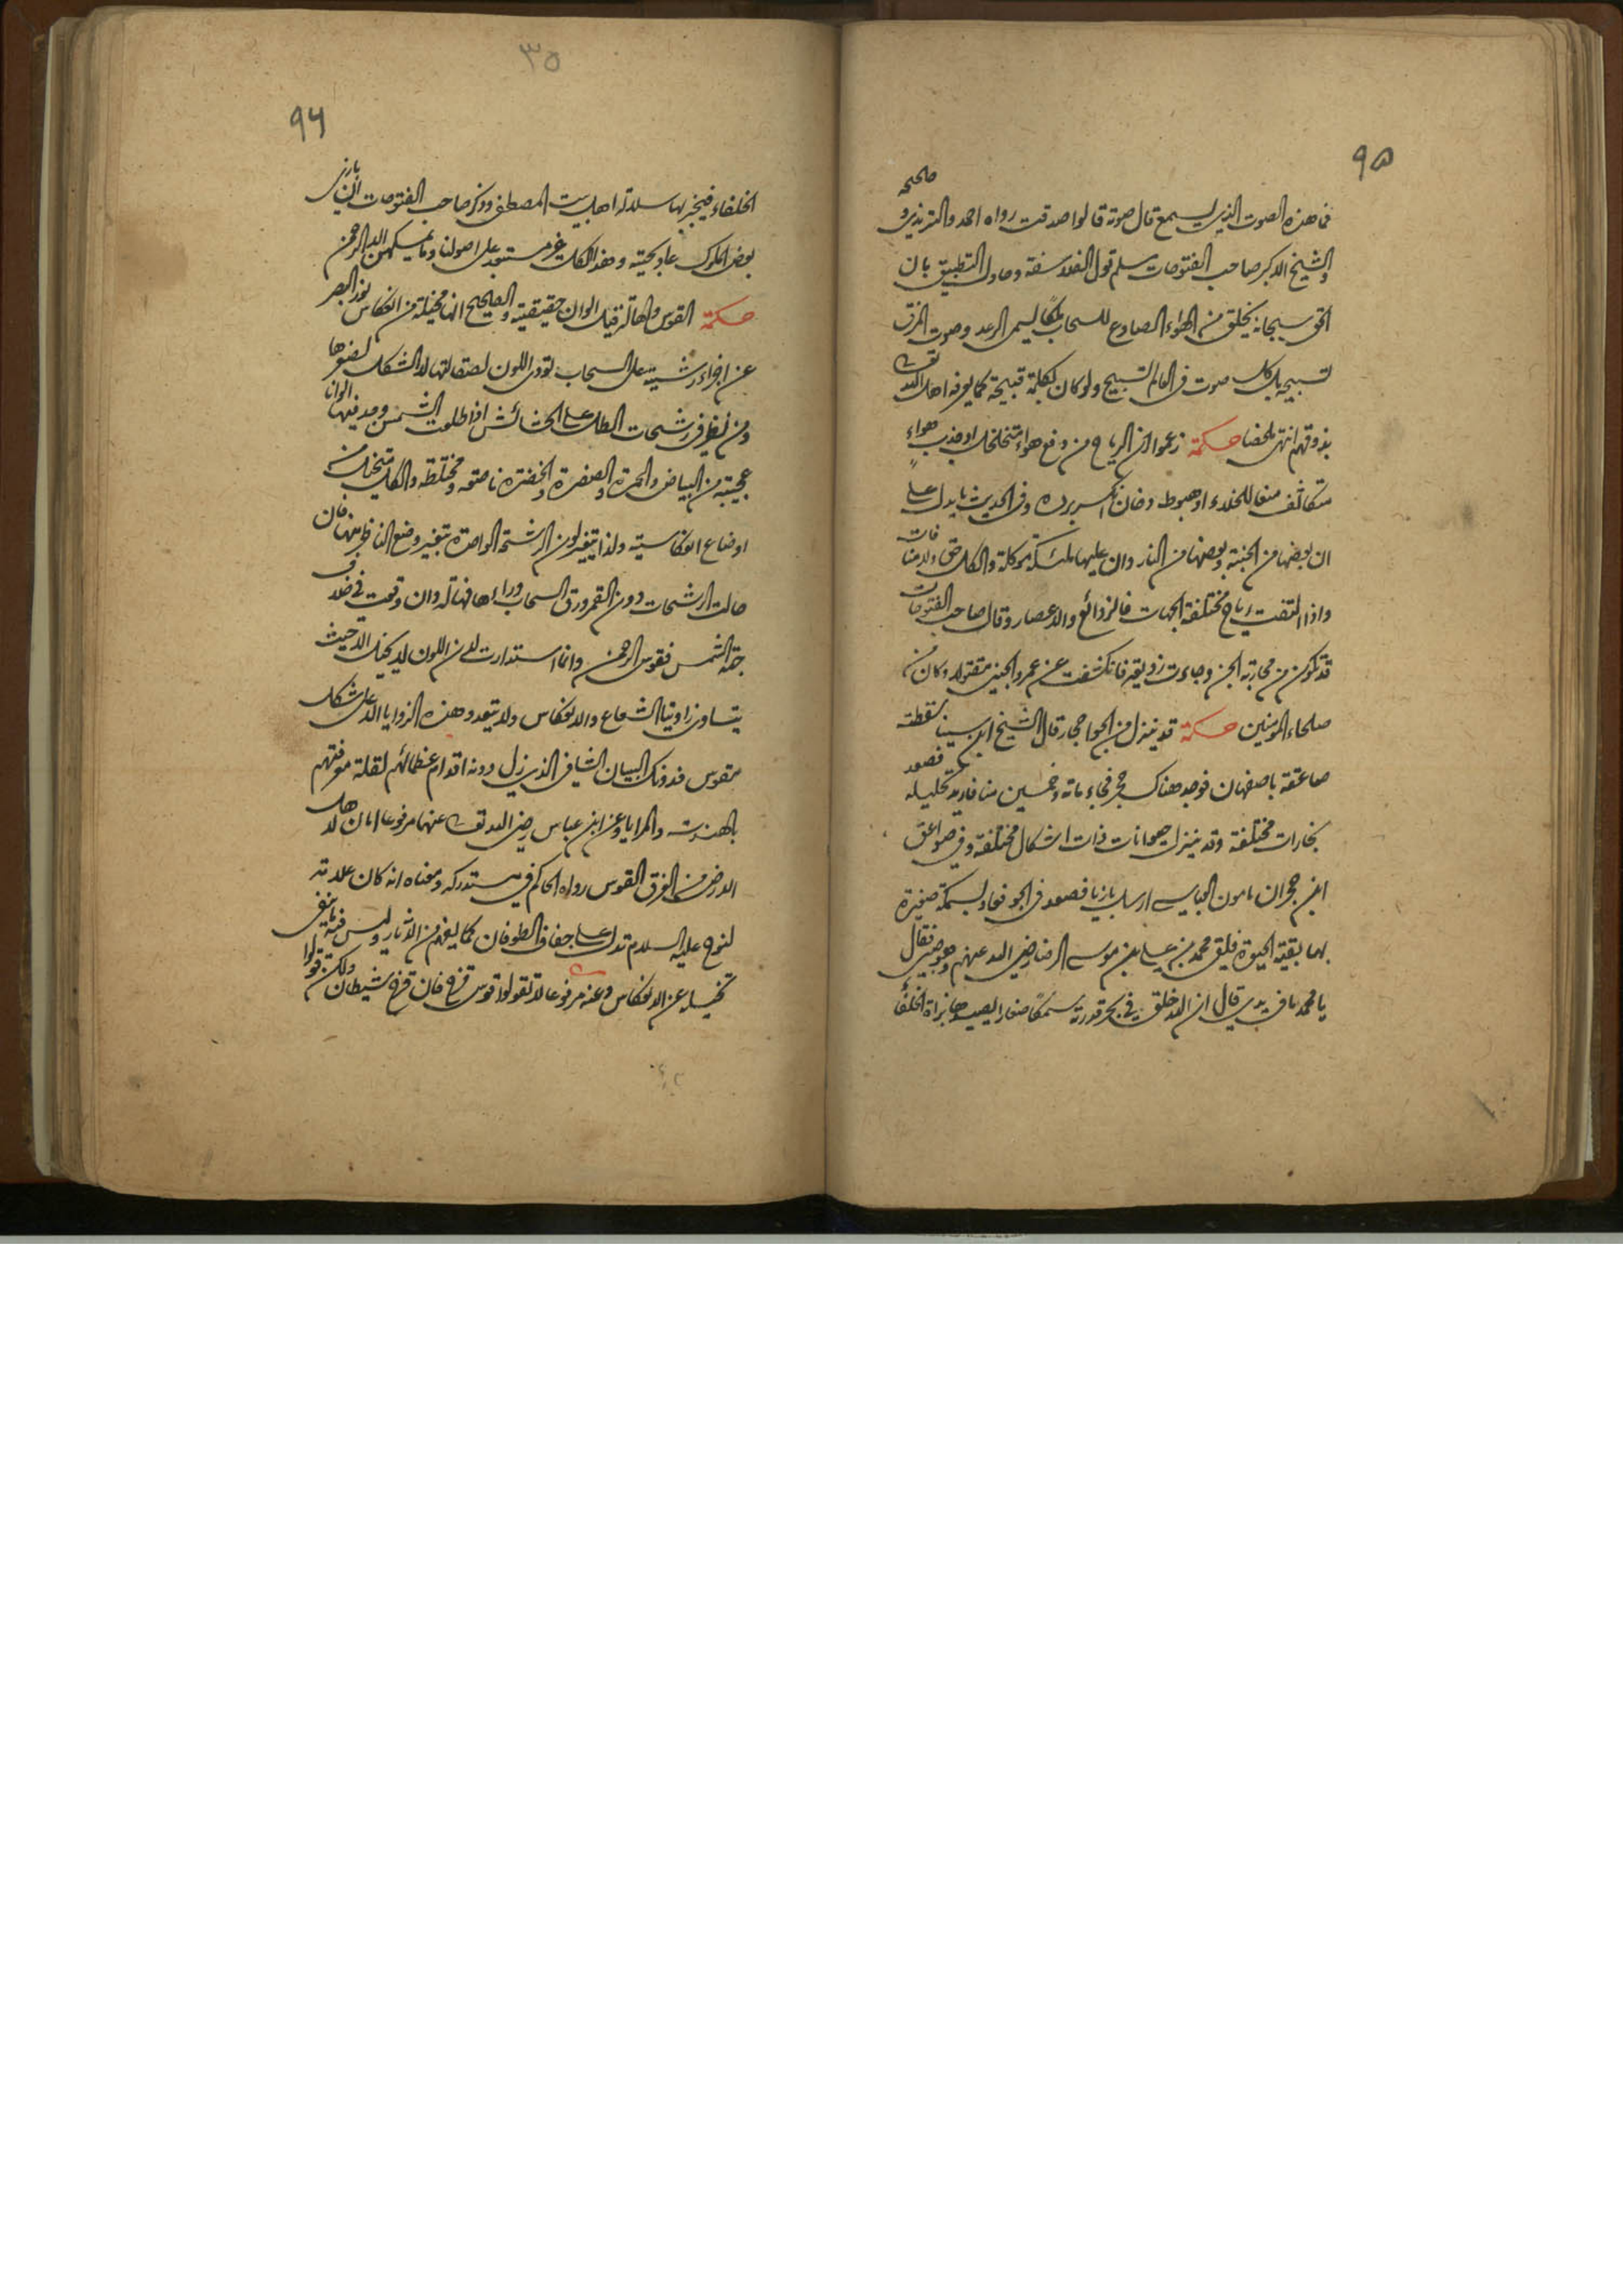 ٩٥
فما هذه الصوت الذي يسمع قال صوته قالوا صدقت رواه احمد والترمذي و
صححه
والشيخ الاكبر صاحب الفتوحات سلم قول الفلاسفة وحاول التطبيق بان
الحق سبحانه يخلق من الهواء الصادع للسحاب ملكا يسمى الرعد وصوت الخرق
تسبيحه بل كل صوت في العالم تسبيح ولو كان بكلمة قبيحة كما يعرفه اهل الله تعالى
بذوقهم انتهى ملخصا حكمة زعموا ان الرياح من دفع هواء متخلخل او جذب هواء
متكاثف منعا للخلاء او هبوط دخان انكسر برده وفي الحديث ما يدل على
ان بعضها من الجنة وبعضها من النار وان عليها ملئكة موكلة والكل حق ولا منافات
واذا التقت رياح مختلفة الجهات فالزوابع والاعصار وقال صاحب الفتوحات
قد تكون من محاربة الجن وجاءت زوبعة فانكشفت عن عمرو الجني مقتولا وكان من
صلحاء المومنين حكمة قد ينزل من الجو احجار قال الشيخ ابن سينا سقطت
صاعقة باصفهان فوجد هناك حجر فجاء مائة وخمسين منا فاريد تحليله فصعد
بخارات مختلفة وقد ينزل حيوانات ذات اشكال مختلفة وفي صواعق
ابن حجر ان مامون العباسي ارسل بازيا فصعد في الجو فعاد بسمكة صغيرة
بها بقية الحيوة فلقي محمد بن علي بن موسى الرضا رضي الله عنهم وهو صبي فقال
يا محمد ما في يدي قال ان الله خلق في بحر قدرته سمكا صغارا يصيدها بزاة الخلفا
٣٥
٩٦
الخلفاء فيختبر بها سلالة اهل بيت المصطفى وذكر صاحب الفتوحات ان بازي
بعض الملوك عاد بحية وهذا الكل غير مستبعد على اصولنا وما يمسكهن الا الرحمن
حكمة القوس والهالة قيل الوان حقيقية والصحيح انها مخيلة من انعكاس نور البصر
عن اجزاء رشية على السحاب تؤدى اللون لصقالتها لا الشكل لصغرها
ومن نظر في رشحات الطل على الحشائش اذا طلعت الشمس وجد فيها الوانا
عجيبة من البياض والحمرة والصفرة والخضرة ناصعة ومختلطة والكل متخيل من
اوضاع انعكاسية ولذا يتغير لون الرشحة الواحدة بتغير وضع الناظر منها فان
حالت الرشحات دون القمر ورق السحاب وراءها فهالة وان وقعت في خلاف
جهة الشمس فقوس الرحمن وانما استدارت لان اللون لا يخيل الا حيث
يتساوى زاويتا الشعاع والانعكاس ولا يتعدد هذه الزوايا الا على شكل
مقوس فدونك البيان الشافي الذي زل دونه اقدام عظمائهم لقلة معرفتهم
بالهندسة والمرايا وعن ابن عباس رضي الله تعالى عنهما مرفوعا امان لاهل
الارض من الغرق القوس رواه الحاكم في مستدركه ومعناه انه كان علامة
لنوح عليه السلام تدل على جفاف الطوفان كما يفهم من الاثار وليس فيه ما ينفي
تخيله عن الانعكاس وعنه مرفوعا لا تقولوا قوس قزح فان قزح شيطان ولكن قولوا